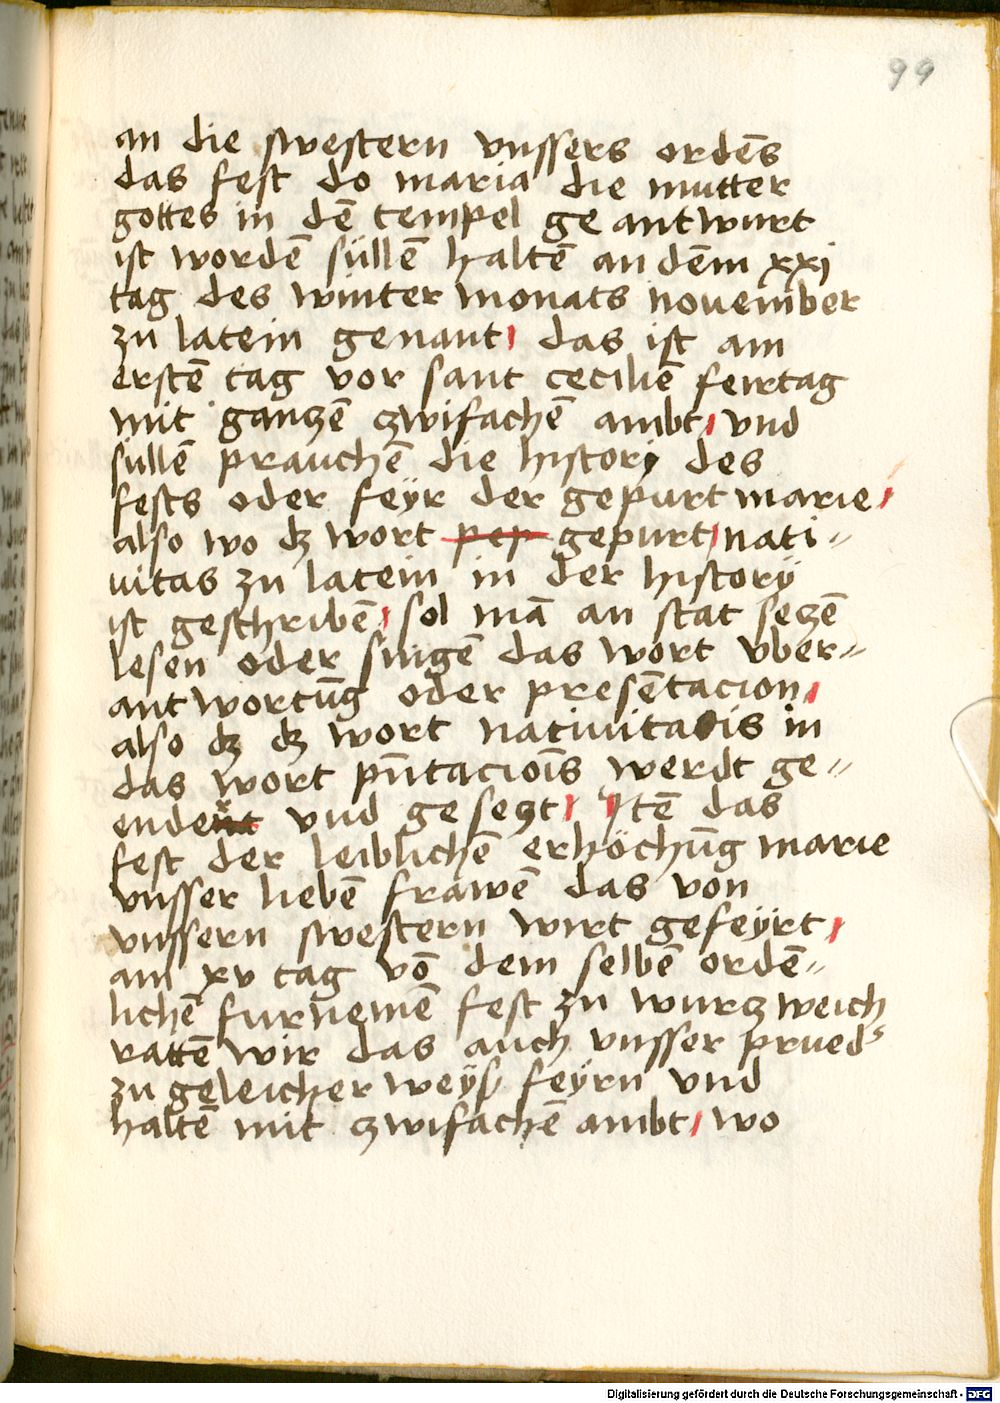 99
an die swestern vnssers ordēs
das fest do maria die mutter
gottes in dē tempel ge antwurt
ist wordē süllē haltē an dēm xxj
tag des winter monats november
zu latein genant das ist am
erstē tag vor sant ceciliē feirtag
mit ganczē zwifachē ambt vnd
süllē prauchē die history des
fests oder feÿr der gepurt marie
also wo dz wort pep gepurt nati-
uitas zu latein in der historÿ
ist geschribē sol mā an stat seczē
lesen oder singē das wort vber-
antwortūg oder presētacion
also dz dz wort natiuitatis in
das wort pn̄tacioīs werdt ge-
endent vnd ge seczt Itē das
fest der leiblichē erhöchūg marie
vnsser liebē frawē das von
vnssern swestern wirt gefeÿrt
am xv tag vō dem selbē ordē-
lichē furnemē fest zu wurczweich
rattē wir das auch vnsser prueds
zu geleicher weÿß feÿrn vnd
haltē mit zwifachē ambt wo
Digitalisierung gefördert durch die Deutsche Forschungsgemeinschaft - DFG